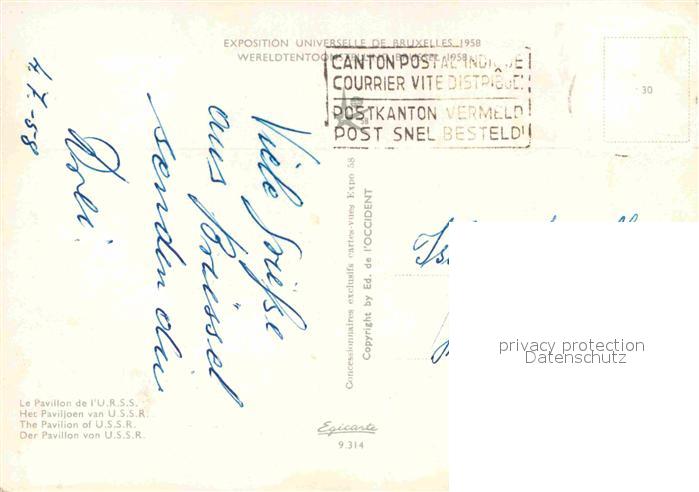 EXPOSITION UNIVERSELLE DE BRUXELLES 1958
WERELDTENTOONSTELLING BRUSSEL 1958
CANTON POSTAL INDIQUÉ
COURRIER VITE DISTRIBUÉ!
POSTKANTON VERMELD
POST SNEL BESTELD!
30
4.7.-58
Viele Grüße
aus Brüssel
senden dir
Concessionnaires exclusifs cartes-vues Expo 58
Copyright by Ed. de l'OCCIDENT
privacy protection
Datenschutz
Le Pavillon de l'U.R.S.S.
Het Paviljoen van U.S.S.R.
The Pavilion of U.S.S.R.
Der Pavillon von U.S.S.R.
Egicarte
9.314